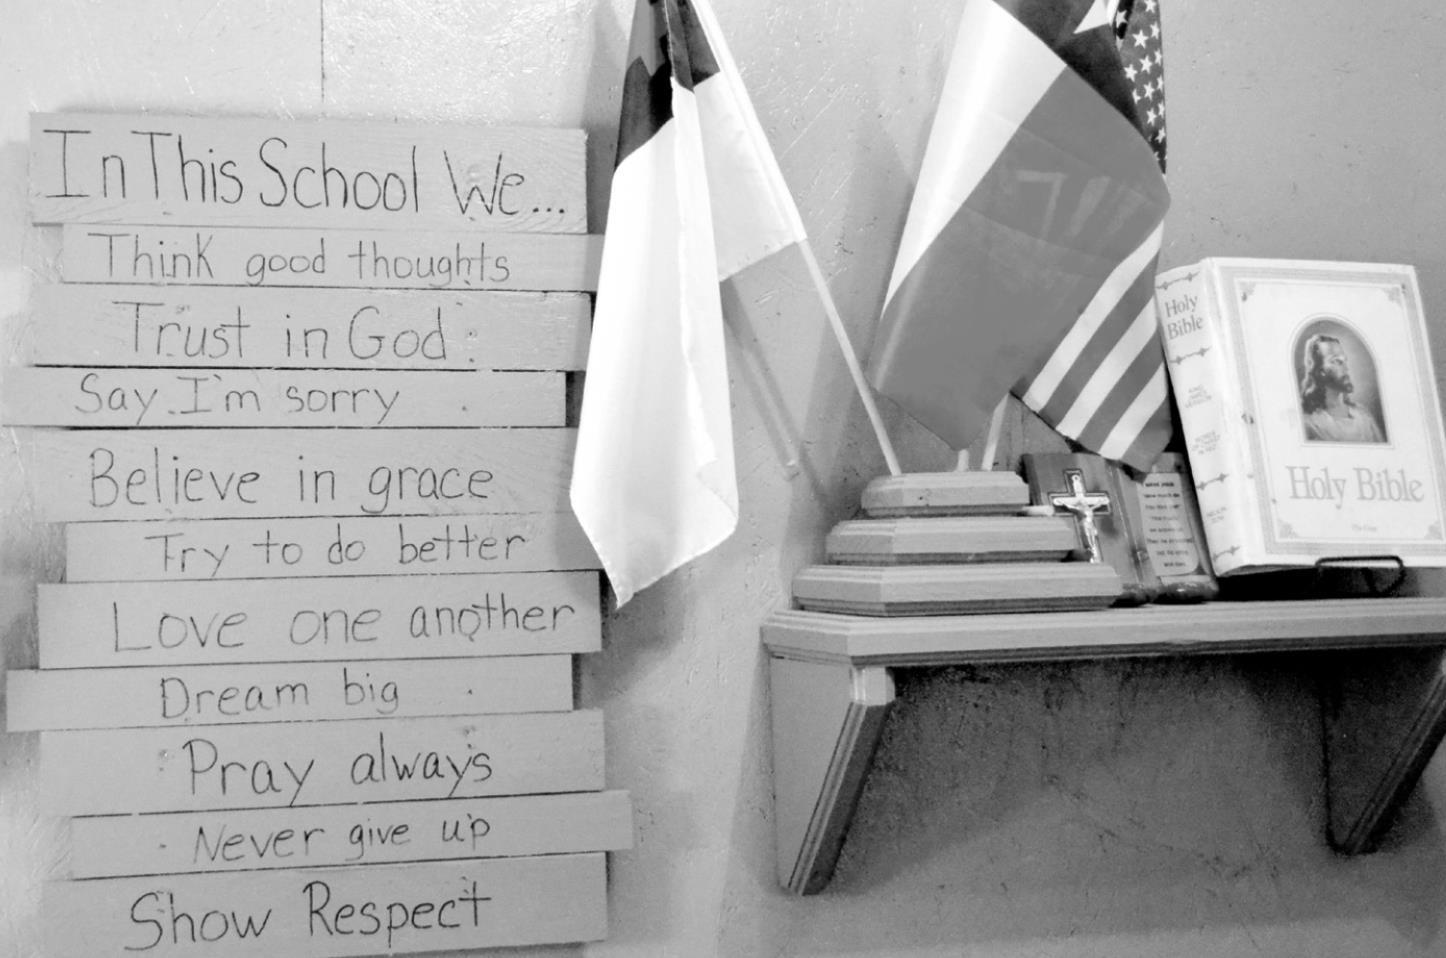 In This School We...
Think good thoughts
Trust in God
Say I'm sorry
Believe in grace
Try to do better
Love one another
Dream big
Pray always
Never give up
Show Respect
Holy
Bible
KING
JAMES
VERSION
Holy Bible